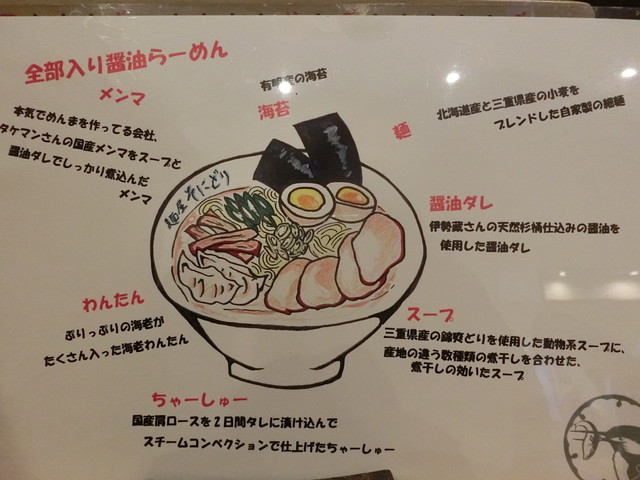 全部入り醤油らーめん
メンマ
本気でめんまを作ってる会社、
タケマンさんの国産メンマをスープと
醤油ダレでしっかり煮込んだ
メンマ
有明産の海苔
海苔
麺
北海道産と三重県産の小麦を
ブレンドした自家製の細麺
麺屋 そにどり
醤油ダレ
伊勢蔵さんの天然杉桶仕込みの醤油を
使用した醤油ダレ
わんたん
ぷりっぷりの海老が
たくさん入った海老わんたん
スープ
三重県産の錦爽どりを使用した動物系スープに、
産地の違う数種類の煮干しを合わせた、
煮干しの効いたスープ
ちゃーしゅー
国産肩ロースを2日間タレに漬け込んで
スチームコンベクションで仕上げたちゃーしゅー